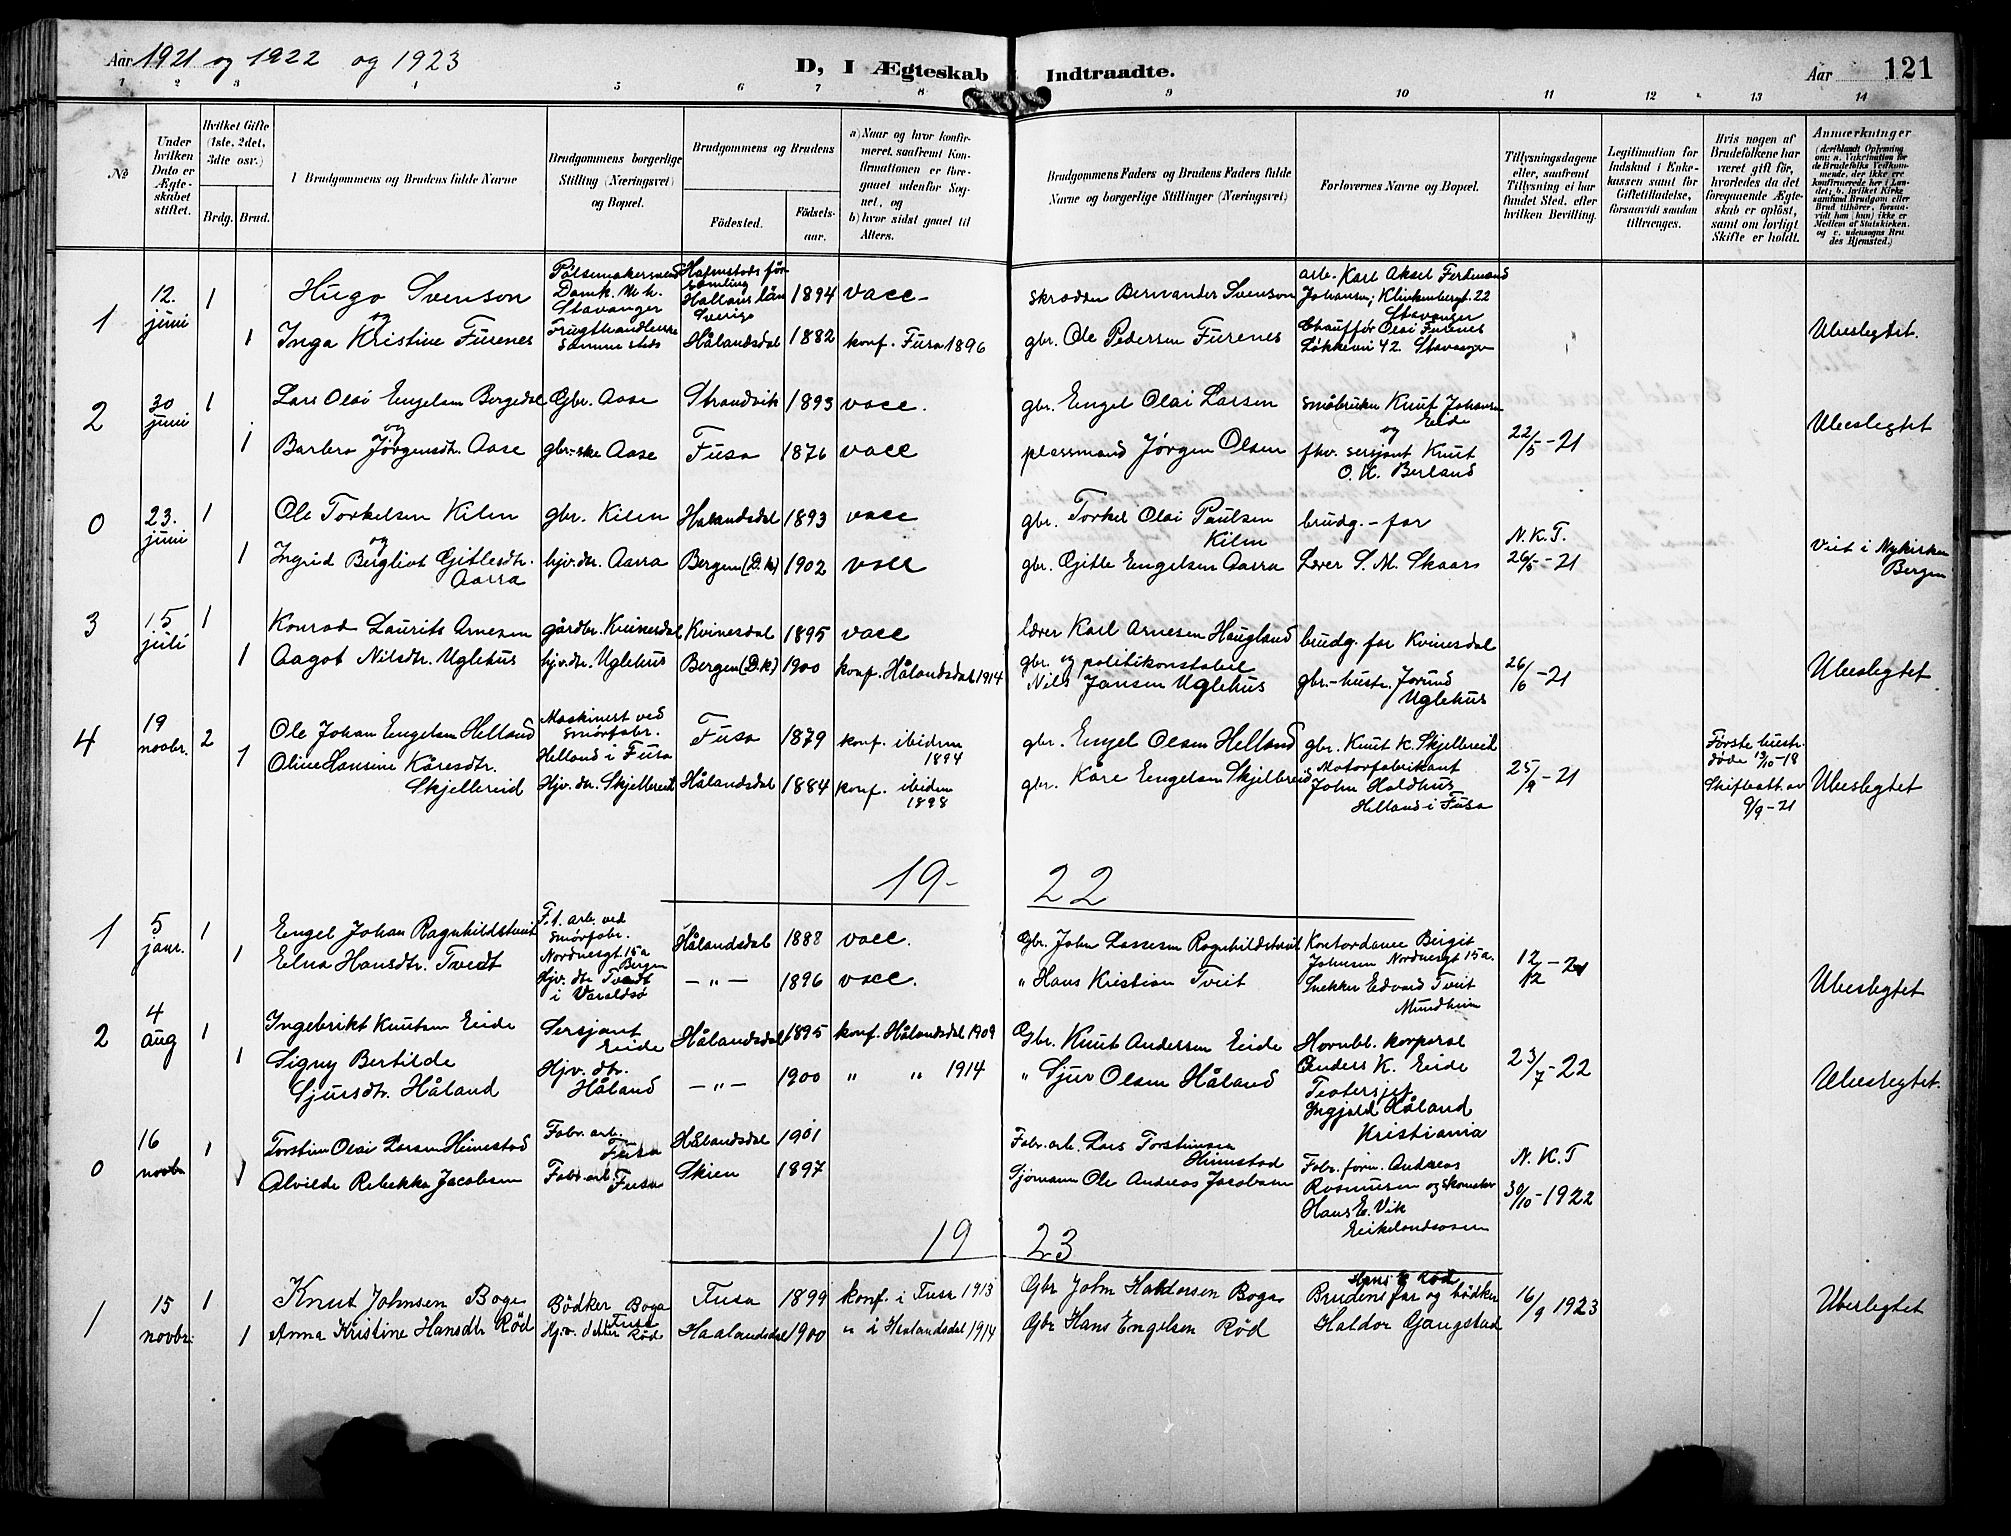 Aar 1921 og 1922 og 1923
D, I Ægteskab Indtraadte.
Aar 121
1 2 3 4 5 6 7 8 9 10 11 12 13 14
No
Under hvilken Dato er Ægteskabet stiftet.
Hvilket Gifte (1ste, 2det, 3die osv.)
Brdg. Brud.
Brudgommens og Brudens fulde Navne
Brudgommens borgerlige Stilling (Næringsvei) og Bopæl.
Brudgommens og Brudens
Fødested. Fødselsaar.
a) Naar og hvor konfirmeret, saafremt Konfirmationen er foregaaet udenfor Sognet, og
b) hvor sidst gaaet til Alters.
Brudgommens Faders og Brudens Faders fulde Navne og borgerlige Stillinger (Næringsvei)
Forlovernes Navne og Bopæl.
Tillysningsdagene eller, saafremt Tillysning ei har fundet Sted, efter hvilken Bevilling.
Legitimation for Indskud i Enkekassen samt for Giftetilladelse, forsaavidt saadan tiltrænges.
Hvis nogen af Brudefolkene har været gift før, hvorledes da det foregaaende Ægteskab er opløst, samt om lovligt Skifte er holdt.
Anmærkninger
1 12. juni 1 Hugo Svenson
Pølsemakersvend Damk. Stavanger
Halmstads församling Hallans län Sverige 1894 vacc.
skrædder Bernander Svenson
arb. Karl Aksel Ferdinand Johansen, Klinkenbergt. 22 Stavanger
og
1 Inga Kristine Furenes
Frugthandlerske sammesteds Hålandsdal 1882 konf. Fusa 1896
gbr. Ole Pedersen Furenes
Chauffør Olai Furenes Løkkevei 42. Stavanger
Ubeslegtet.
2 30 juni 1 Lars Olai Engelsen Bergedal Gbr. Aase Strandvik 1893 vacc.
gbr. Engel Olai Larsen
småbruker Knut Johansen Eide
og
1 Barbro Jørgensdtr. Aase gbr.-ske Aase Fusa 1876 vacc
plassmand Jørgen Olsen
og fhv. sersjant Knut O. K. Berland
22/5-21
Ubeslegtet
0 23. juni 1 Ole Torkelsen Kilen gbr. Kilen Hålandsdal 1893 vacc
gbr. Torkel Olai Paulsen Kilen
brudg.-far
og
1 Ingrid Bergliot Gjitlesdtr. Aarra hjv. dtr. Aarra Bergen (D.k) 1902 vacc
gbr. Gjitle Engelsen Aarra
Lærer S. M. Skaar
N. K. T. 26/5-21
Viet i Nykirken Bergen
3 15 juli 1 Konrad Laurits Arnesen gårdbr. Kvinesdal Kvinesdal 1895 vacc
lærer Karl Arnesen Haugland
brudg. far Kvinesdal
1 Aagot Nilsdtr. Uglehus hjv. dtr. Uglehus Bergen (D.k) 1900 konf. Hålandsdal 1914
gbr. og politikonstabel Nils Jansen Uglehus
gbr.-hustr. Jorund Uglehus
26/6-21
Ubeslegtet
4 19 novbr. 2 Ole Johan Engelsen Helland
Maskinist ved smørfabr. Helland i Fusa Fusa 1879 konf. ibidem 1894
gbr. Engel Olsen Helland
gbr. Knut K. Skjellereid
1 Oline Hansine Kåresdtr. Skjellereid
Hjv. dtr. Skjellereid Hålandsdal 1884 konf. ibidem 1898
gbr. Kåre Engelsen Skjellereid
Motorfabrikant John Holdhus Helland i Fusa
25/9-21
Første hustr. døde 13/10-18
Skifteatt. av 9/9-21
Ubeslegtet
19-22
1 5 janr. 1 Engel Johan Ragnhildstveit
F.t. arb. ved smørfabr. Nordnesgt 15a Bergen
Hålandsdal 1888 vacc.
Gbr. John Lassesen Ragnhildstveit
Kontordame Birgit Johnsen Nordnesgt 15a.
1 Elna Hansdtr. Tvedt
Hjv. dtr Tvedt i Varaldsø -"- 1896 vacc.
" Hans Kristian Tveit
Snekker Edvard Tveit Mundheim
12/12-21
Ubeslegtet
2 4 aug 1 Ingebrikt Knutsen Eide
Sersjant Eide Hålandsdal 1895 konf. Hålandsdal 1909
Gbr. Knut Andersen Eide
Hornbl. korporal Anders K. Eide
1 Signy Bertilde Sjursdtr. Håland
Hjv. dtr. Håland -"- 1900 " " 1914
" Sjur Olsen Håland
Teatersjef Ingjald Håland Kristiania
23/7-22
Ubeslegtet.
0 16 novbr 1 Torstein Olai Larsen Heimstad
Fabr. arb. Fusa Hålandsdal 1901
Fabr. arb. Lars Torsteinsen Heimstad
Fabr. form. Andreas Rasmussen og skomaker Hans E. Vik Eikelandsosen
1 Alvilde Rebekka Jacobsen
Fabr. arb. Fusa Skien 1897
Sjømann Ole Andreas Jacobsen
N. K. T 30/10-1922
19 23
1 15 novbr. 1 Knut Johnsen Boge
Bödker Boga Fusa Fusa 1899 konf. i Fusa 1913
Gbr John Haldorsen Boga
Hans E. Rød Brudens far og bödker Haldor Gangstad
1 Anna Kristine Hansdtr Rød
Hjv. datter Rød Haalandsdal 1900 " i Haalandsdal 1914
Gbr Hans Engelsen Rød
16/9 1923
Uberlegtet